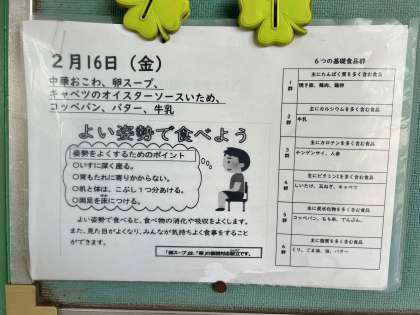 2月16日（金）
中華おこわ、卵スープ、
キャベツのオイスターソースいため、
コッペパン、バター、牛乳
よい姿勢で食べよう
姿勢をよくするためのポイント
○いすに深く座る。
○背もたれに寄りかからない。
○机と体は、こぶし1つ分あける。
○両足を床につける。
よい姿勢で食べると、食べ物の消化や吸収をよくします。
また、見た目がよくなり、みんなが気持ちよく食事をすること
ができます。
6つの基礎食品群
1群
主にたんぱく質を多く含む食品
焼き豚、鶏肉、鶏卵
2群
主にカルシウムを多く含む食品
牛乳
3群
主にカロテンを多く含む食品
チンゲンサイ、人参
4群
主にビタミンCを多く含む食品
しいたけ、玉ねぎ、キャベツ
5群
主に炭水化物を多く含む食品
コッペパン、もち米、でんぷん、
6群
主に脂質を多く含む食品
くり、ごま油、油、バター